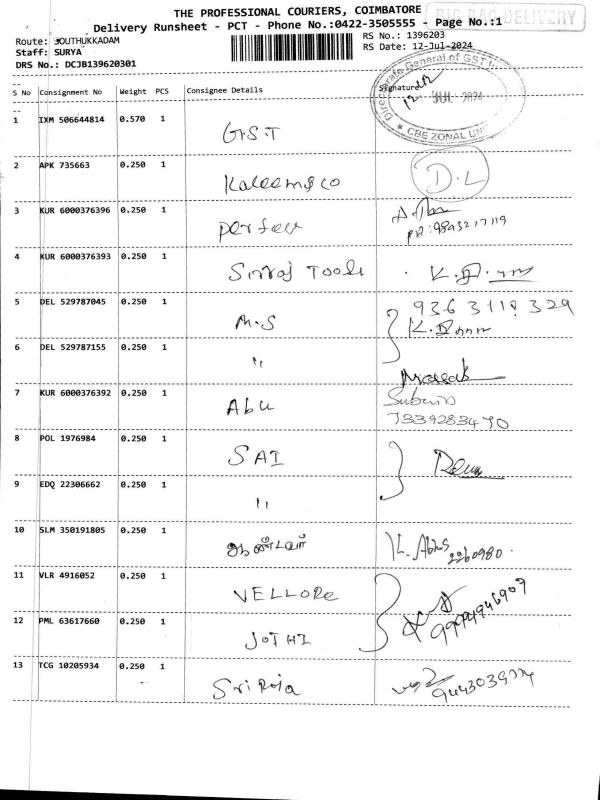 THE PROFESSIONAL COURIERS, COIMBATORE
BIG BAG DELIVERY
Delivery Runsheet - PCT - Phone No.:0422-3505555 - Page No.:1
Route: SOUTHUKKADAM RS No.: 1396203
Staff: SURYA RS Date: 12-Jul-2024
DRS No.: DCJB139620301
Directorate General of GST
JUL 2024
★ CBE ZONAL UNIT
S No Consignment No Weight PCS Consignee Details Signature
1 IXM 506644814 0.570 1 G.S.T
2 APK 735663 0.250 1 Kaleem&co D.L
3 KUR 6000376396 0.250 1
PH:9843217119
4 KUR 6000376393 0.250 1 Sirroj Tools
5 DEL 529787045 0.250 1 M.S 9363118329
6 DEL 529787155 0.250 1 "
7 KUR 6000376392 0.250 1 Abu
7339283470
8 POL 1976984 0.250 1 SAI
9 EDQ 22306662 0.250 1 "
10 SLM 350191805 0.250 1 ஆண்டவர் 2260980
11 VLR 4916052 0.250 1 VELLORE
9994946909
12 PML 63617660 0.250 1 JOTHI
13 TCG 10205934 0.250 1 Sri Roja